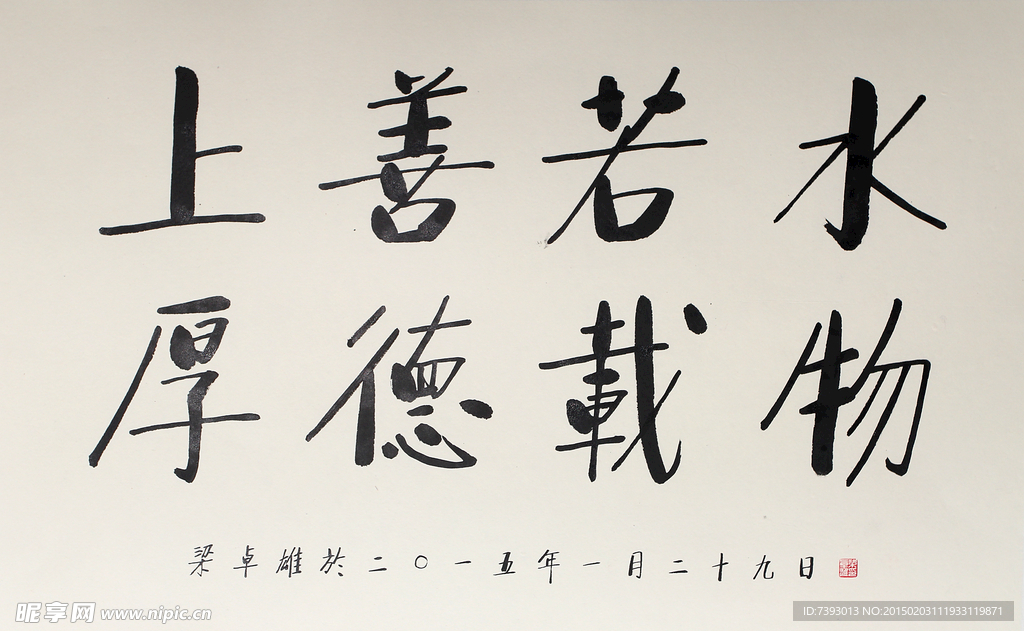 上善若水
厚德載物
梁卓雄於二〇一五年一月二十九日
昵享网 www.nipic.cn
ID:7393013 NO:20150203111933119871